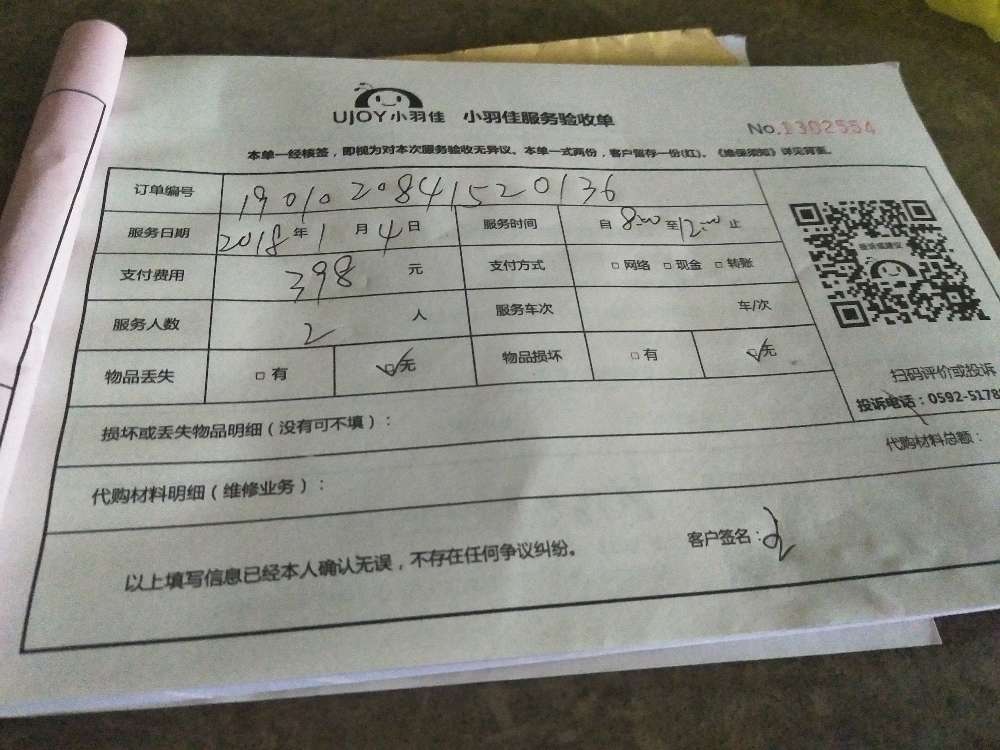 UJOY小羽佳 小羽佳服务验收单
No.1302554
本单一经核签，即视为对本次服务验收无异议。本单一式两份，客户留存一份(红)、《维保须知》详见背面。
订单编号 19010208415220136
服务日期 2018年1月4日 服务时间 自8:00至12:00止
投诉或建议
支付费用 398元 支付方式 □网络 □现金 □转账
服务人数 2人 服务车次 车/次
物品丢失 □有 ☑无 物品损坏 □有 ☑无
扫码评价或投诉
投诉电话：0592-5178
损坏或丢失物品明细（没有可不填）：
代购材料明细（维修业务）： 代购材料总额：
以上填写信息已经本人确认无误，不存在任何争议纠纷。 客户签名：